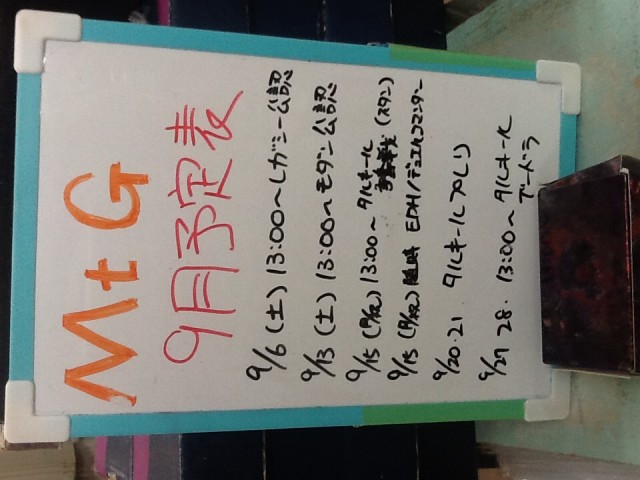 MtG
9月予定表
9/6(土)13:00〜レガシー公認
9/13(土)13:00〜モダン公認
9/15(月/祝)13:00〜タルキール
(スタン)
9/15(月/祝)随時 EDH/デュエルコマンダー
9/20・21 タルキールプレリ
9/27 28・13:00〜タルキール
ゲードラ